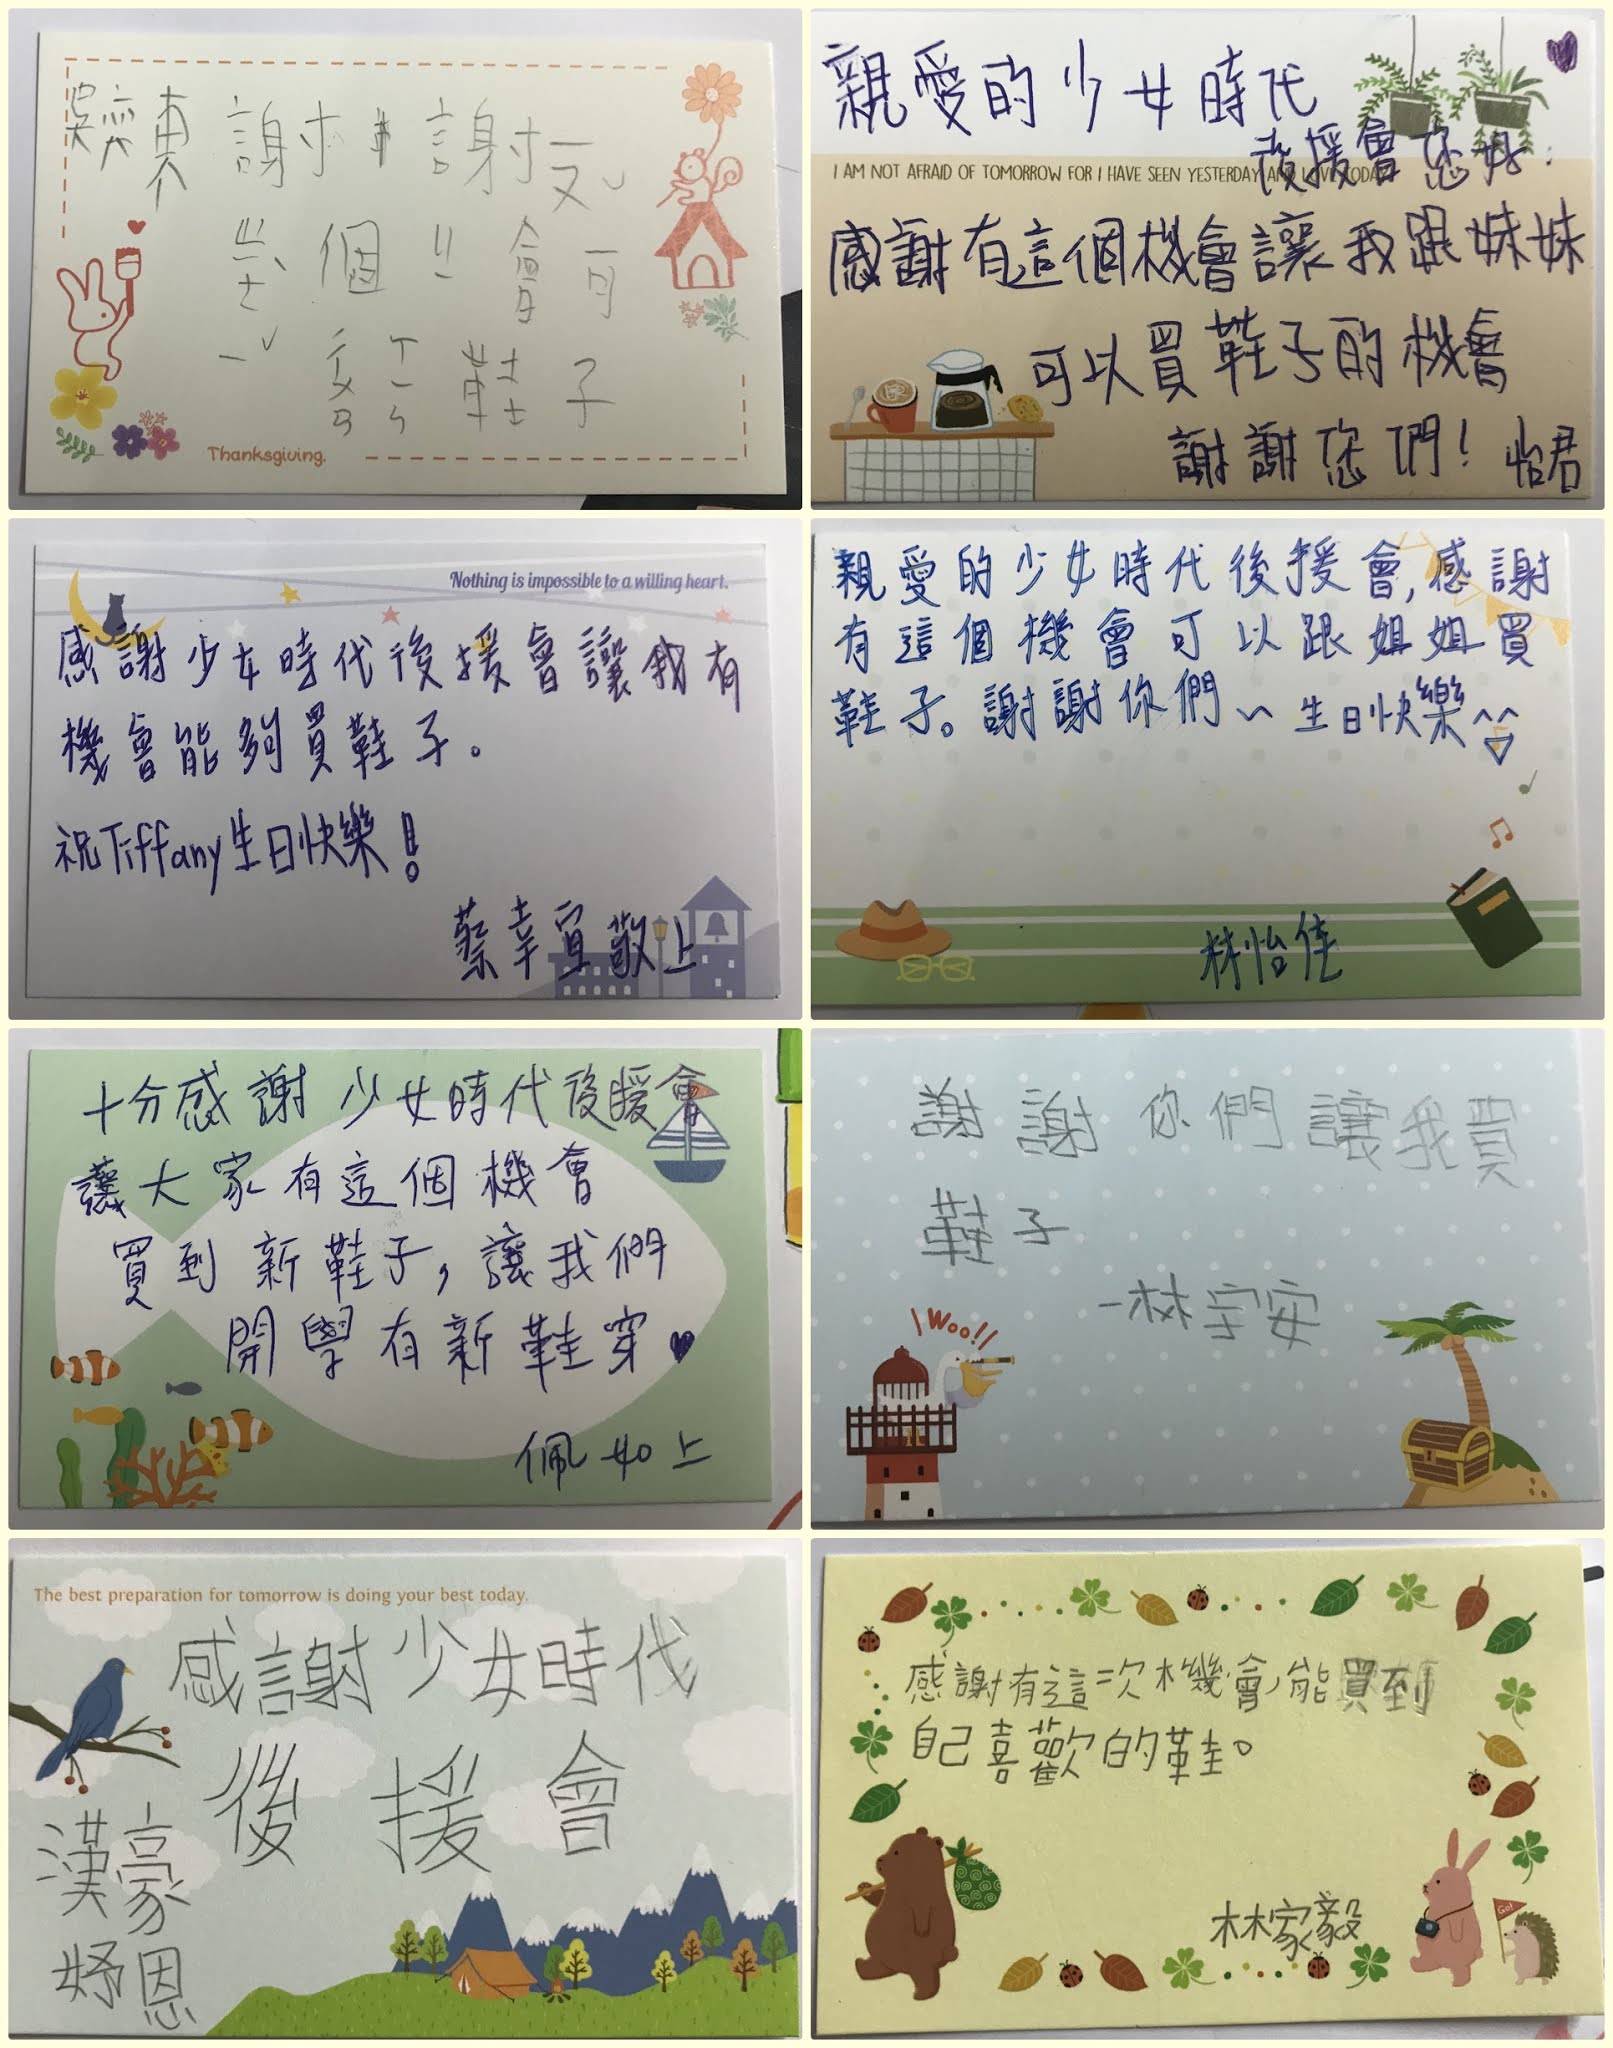 謝 謝
個 會 可
鞋 子
Thanksgiving.
親愛的少女時代
後援會您好:
I AM NOT AFRAID OF TOMORROW FOR I HAVE SEEN YESTERDAY AND I LOVE TODAY
感謝有這個機會讓我跟妹妹
可以買鞋子的機會
謝謝您們! 怡君
Nothing is impossible to a willing heart.
感謝少女時代後援會讓我有
機會能夠買鞋子。
祝Tiffany生日快樂!
蔡幸宜敬上
親愛的少女時代後援會,感謝
有這個機會可以跟姐姐買
鞋子。謝謝你們~生日快樂^^
林怡佳
十分感謝少女時代後暖會
讓大家有這個機會
買到新鞋子,讓我們
開學有新鞋穿♥
佩如上
謝謝你們讓我買
鞋子
-林宇安
Woo!!
The best preparation for tomorrow is doing your best today.
感謝少女時代
後援會
漢豪
妤恩
感謝有這次機會能買到
自己喜歡的鞋。
林家毅
Go!